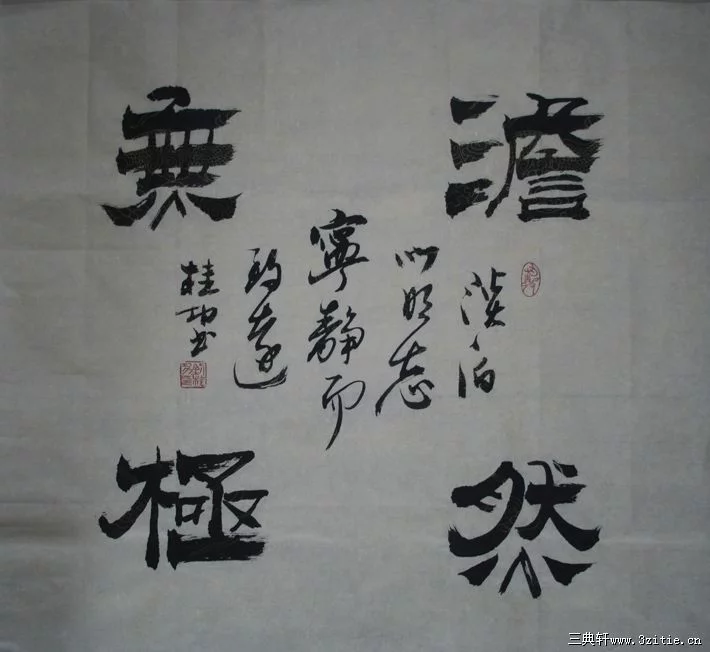 澹然
無極
淡泊
以明志
寧靜而
致遠
桂 书
三典轩www.3zitie.cn